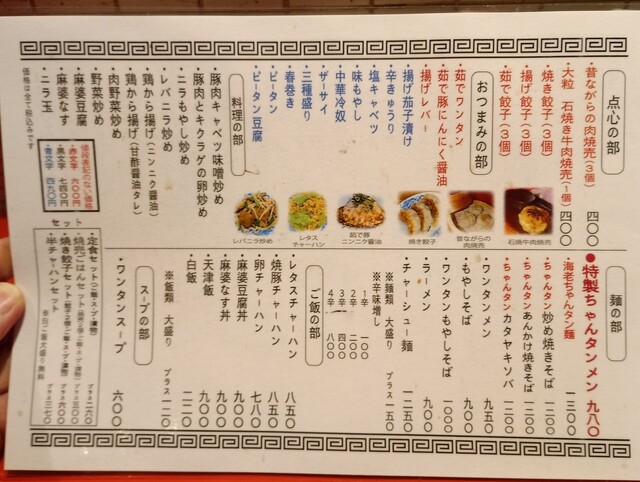 点心の部
・昔ながらの肉焼売(3個) 四〇〇
・大粒 石焼き牛肉焼売(1個) 四〇〇
・焼き餃子(3個)
・揚げ餃子(3個)
・茹で餃子(3個)
おつまみの部
・茹でワンタン
・茹で豚にんにく醤油
・揚げレバー
・揚げ茄子漬け
・辛きゅうり
・塩キャベツ
・味もやし
・中華冷奴
・ザーサイ
・三種盛り
・春巻き
・ピータン
・ピータン豆腐
料理の部
・豚肉キャベツ味噌炒め
・豚肉とキクラゲの卵炒め
・ニラもやし炒め
・レバニラ炒め
・鶏から揚げ(ニンニク醤油)
・鶏から揚げ(甘酢醤油タレ)
・肉野菜炒め
・野菜炒め
・麻婆豆腐
・麻婆なす
・ニラ玉
価格は全て税込みです
値段表記のない価格
・赤文字 六〇〇円
・黒文字 七四〇円
・青文字 四九〇円
石焼牛肉焼売
昔ながらの肉焼売
焼き餃子
茹で豚ニンニク醤油
レタスチャーハン
レバニラ炒め
麺の部
●特製ちゃんタンメン 九八〇
・海老ちゃんタン麺 一三〇〇
・ちゃんタン炒め焼きそば 一二〇〇
・ちゃんタンあんかけ焼きそば 一二〇〇
・ちゃんタンカタヤキソバ 一二〇〇
・ワンタンメン 九五〇
・もやしそば 九〇〇
・ワンタンもやしそば 一〇〇〇
・ラーメン 九〇〇
・チャーシュー麺 一二五〇
※麺類 大盛り プラス一五〇
※辛味増し
1辛 一〇〇
2辛 二〇〇
3辛 四〇〇
4辛 八〇〇
ご飯の部
・レタスチャーハン 八五〇
・焼豚チャーハン 八五〇
・卵チャーハン 七八〇
・麻婆豆腐丼 九〇〇
・麻婆なす丼 九〇〇
・天津飯 九〇〇
・白飯 二二〇
※飯類 大盛り プラス一二〇
スープの部
・ワンタンスープ 六〇〇
セット
・定食セット プラス二六〇
・焼売ごはんセット プラス五〇〇
・焼き餃子セット プラス六〇〇
・半チャーハンセット プラス三七〇
※白ご飯大盛り無料